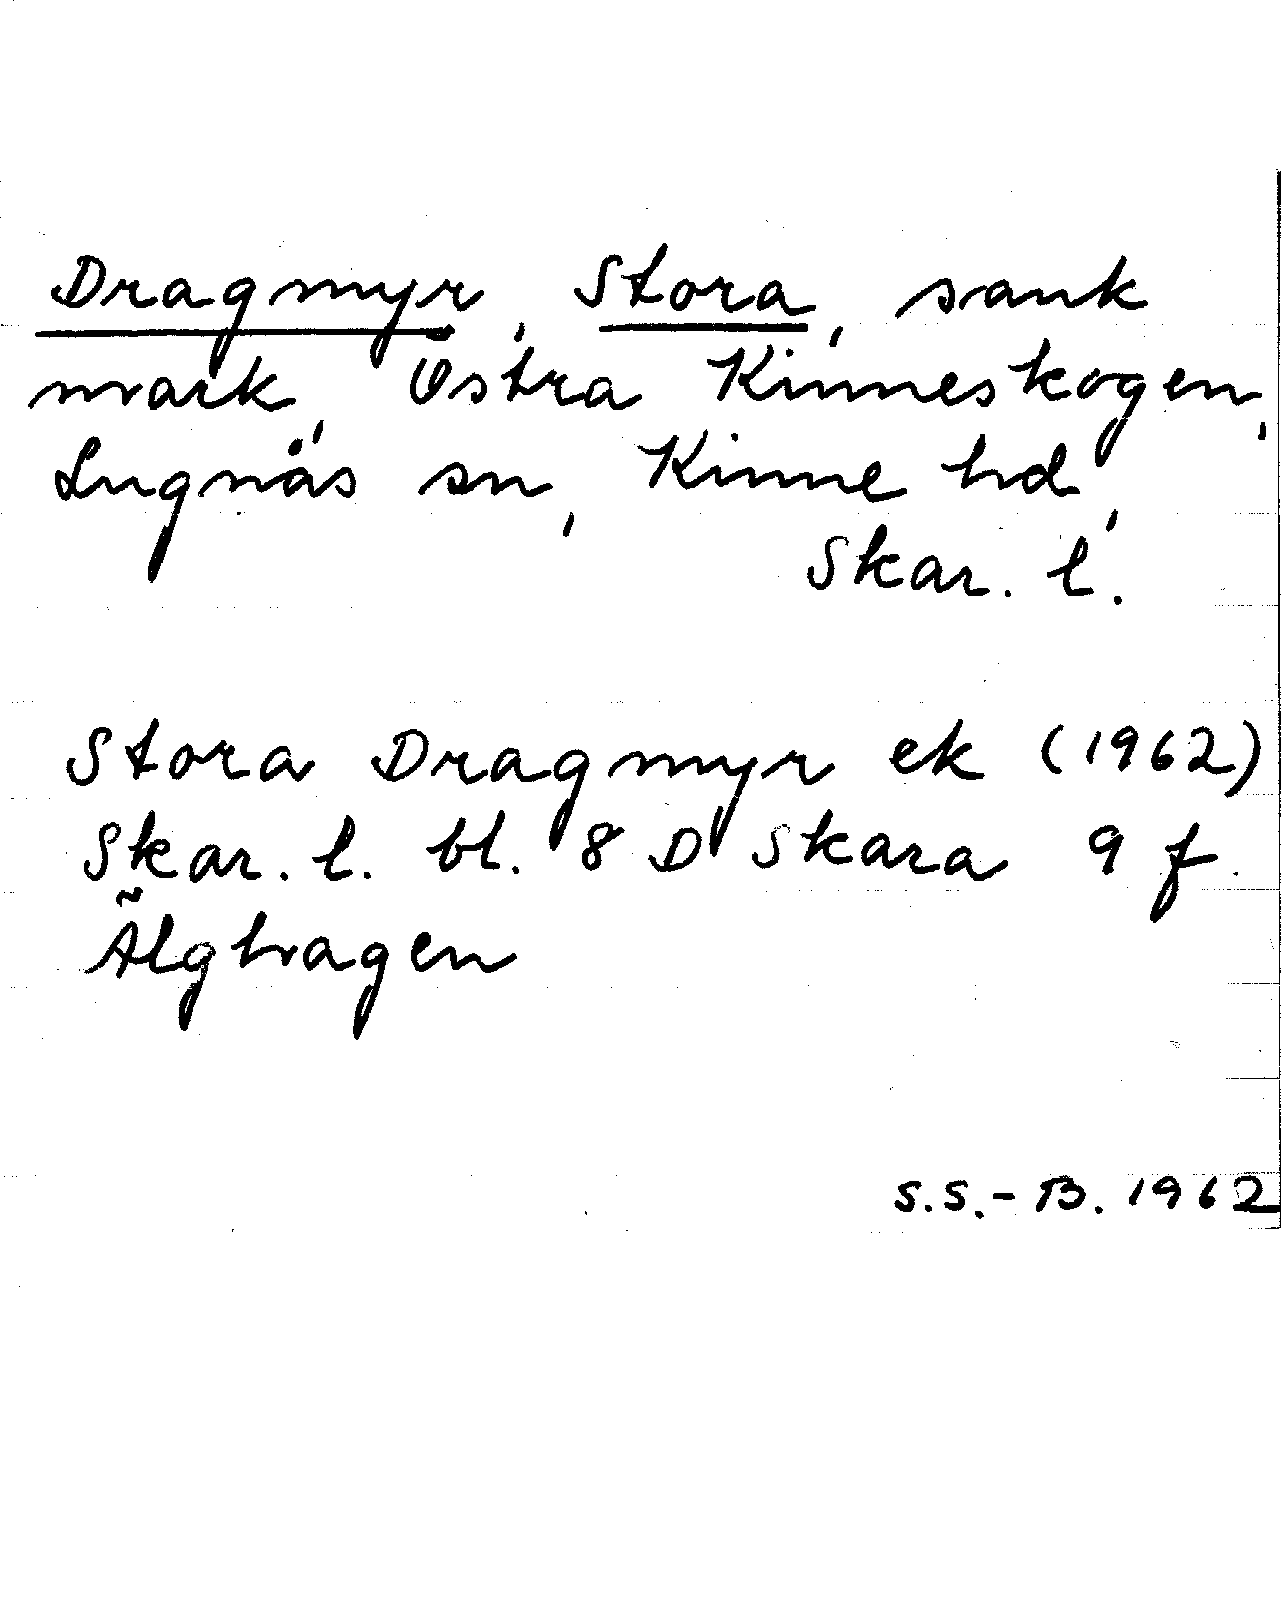 Dragmyr, Stora, sank
mark, Östra Kinneskogen,
Lugnås sn, Kinne hd,
Skar. l.
Stora Dragmyr ek (1962)
Skar. l. bl. 8 D Skara 9 f
Älghagen
S.S.-B. 1962